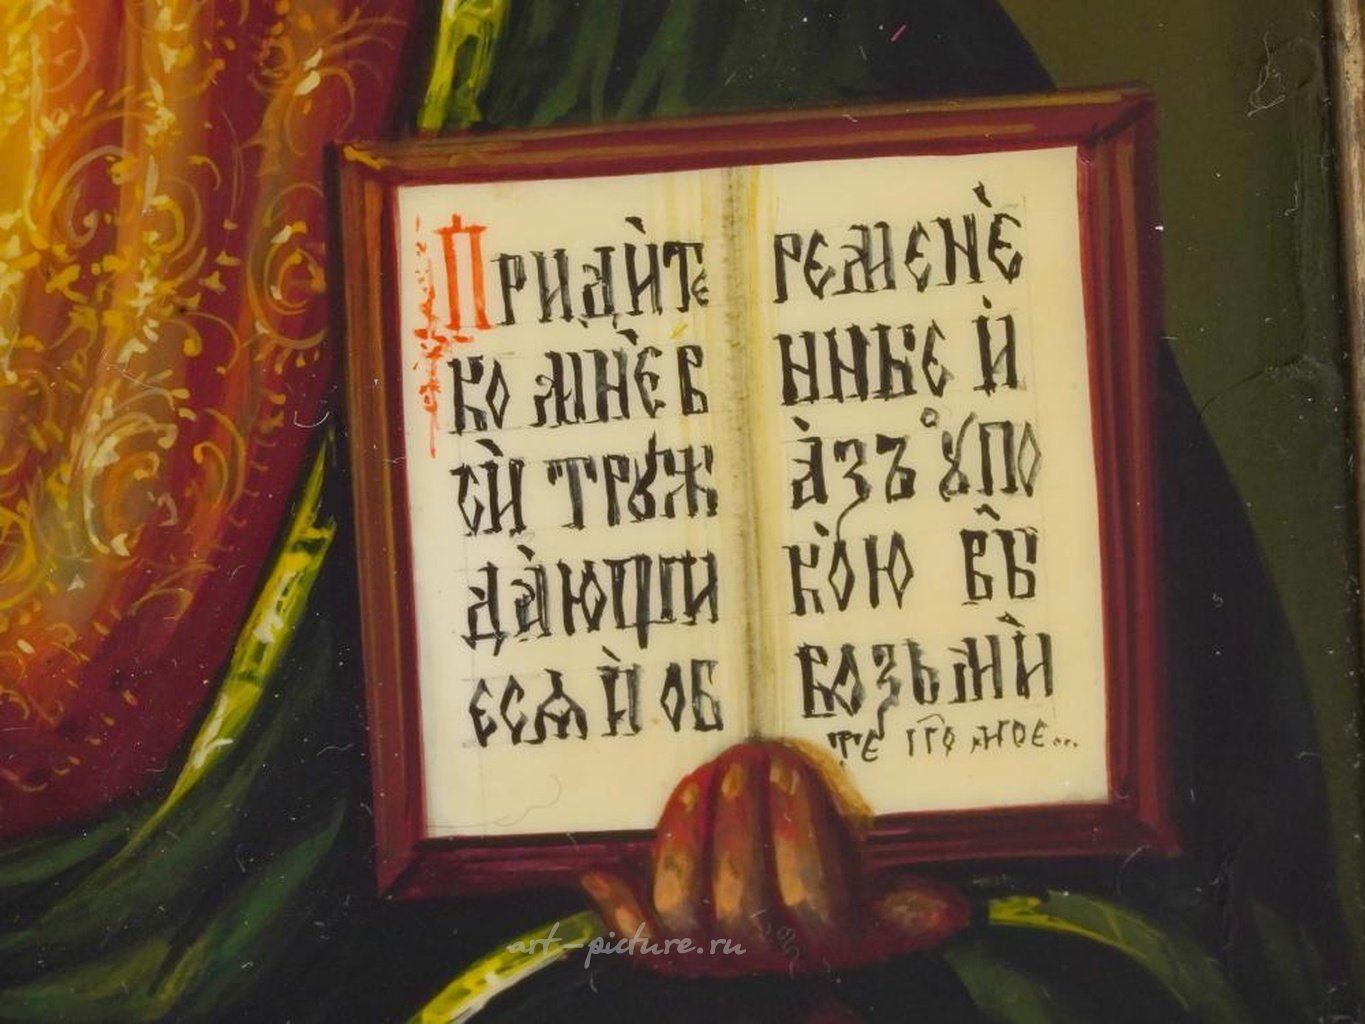 Придите
ко мнѐ в
сѝ трꙋж
да̀ющи
есѧ ѝ об
ременѐ
ннꙑе ѝ
а̀зъ ꙋпо
ко̀ю вы̑
возьмѝ
те иго мое...
art-picture.ru